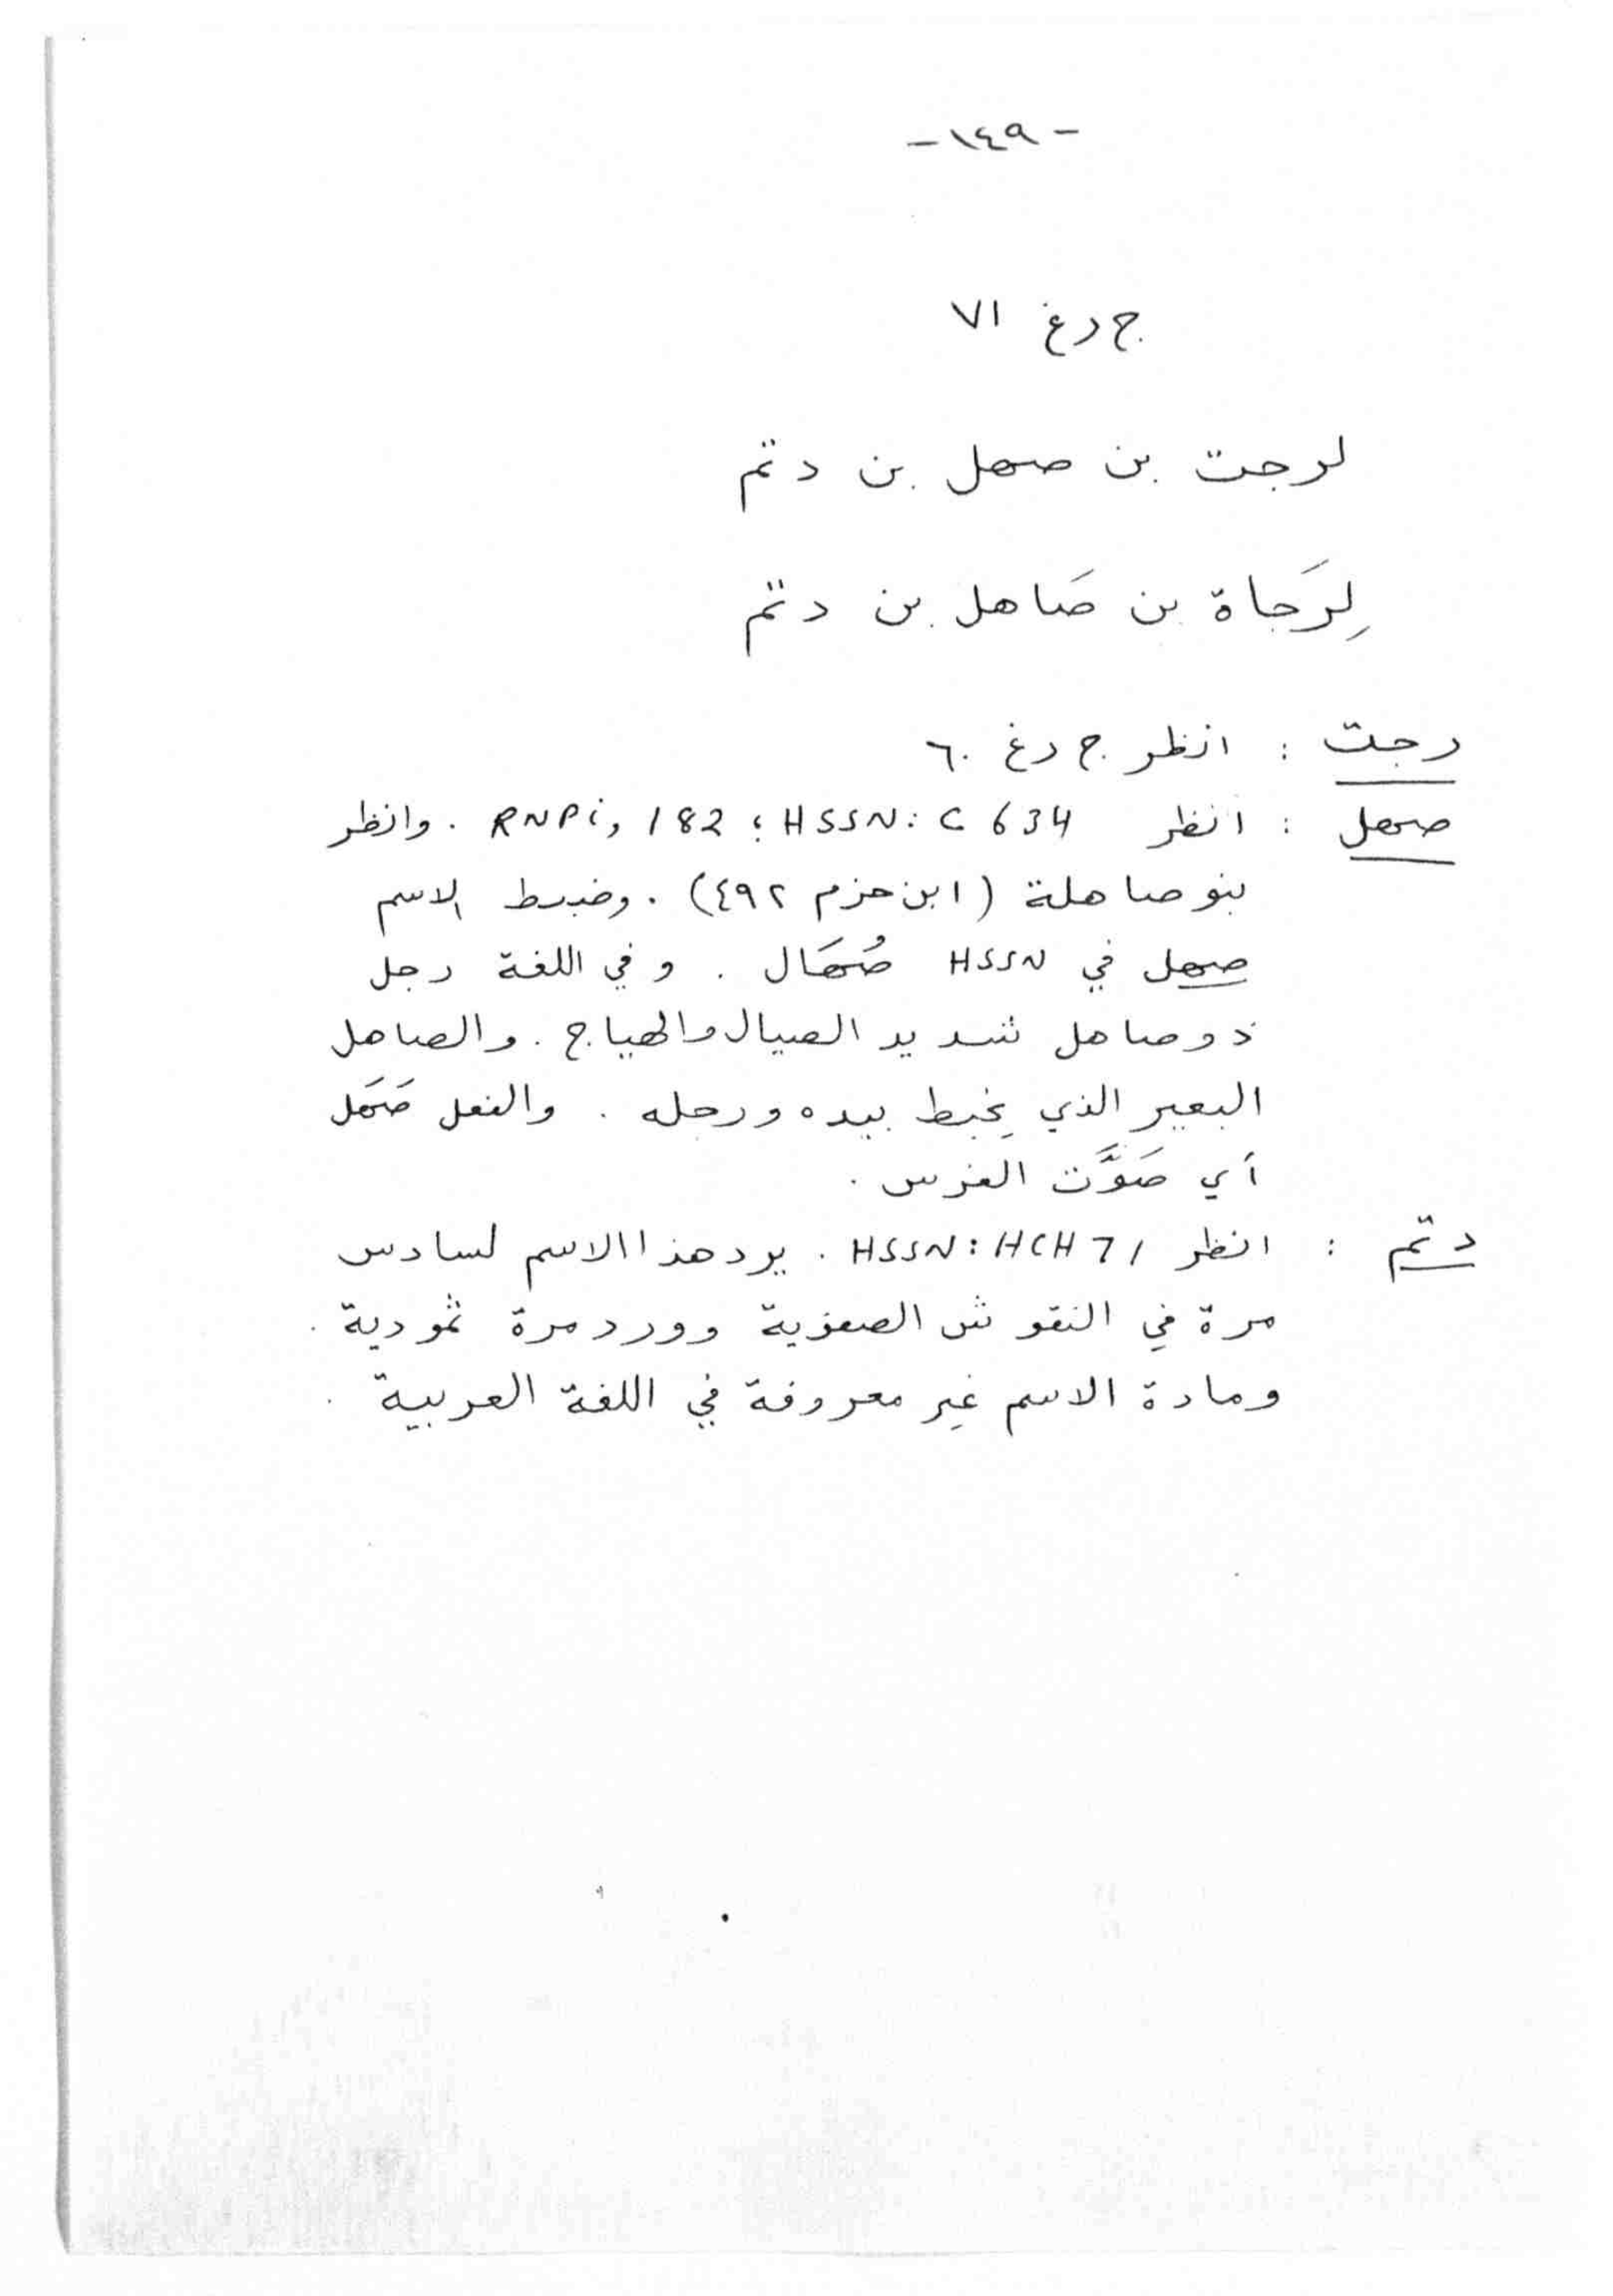 - ١٤٩ -
ج د غ ٧١
لرجت بن صهل بن دتم
لِرَجَاة بن صَاهل بن دتم
رجت : انظر ج د غ ٦٠
صهل : انظر RNPi, 182 ؛ HSSN: C 634 . وانظر
بنو صاهلة (ابن حزم ٤٩٢) . وضبط الاسم
صهل في HSSN صُهَال . وفي اللغة رجل
ذو صاهل شديد الصيال والهياج . والصاهل
البعير الذي يخبط بيده ورجله . والفعل صَهَل
أي صَوَّت الفرس .
دتم : انظر HSSN: HCH 71 . يرد هذا الاسم لسادس
مرة في النقوش الصفوية وورد مرة ثمودية .
ومادة الاسم غير معروفة في اللغة العربية .